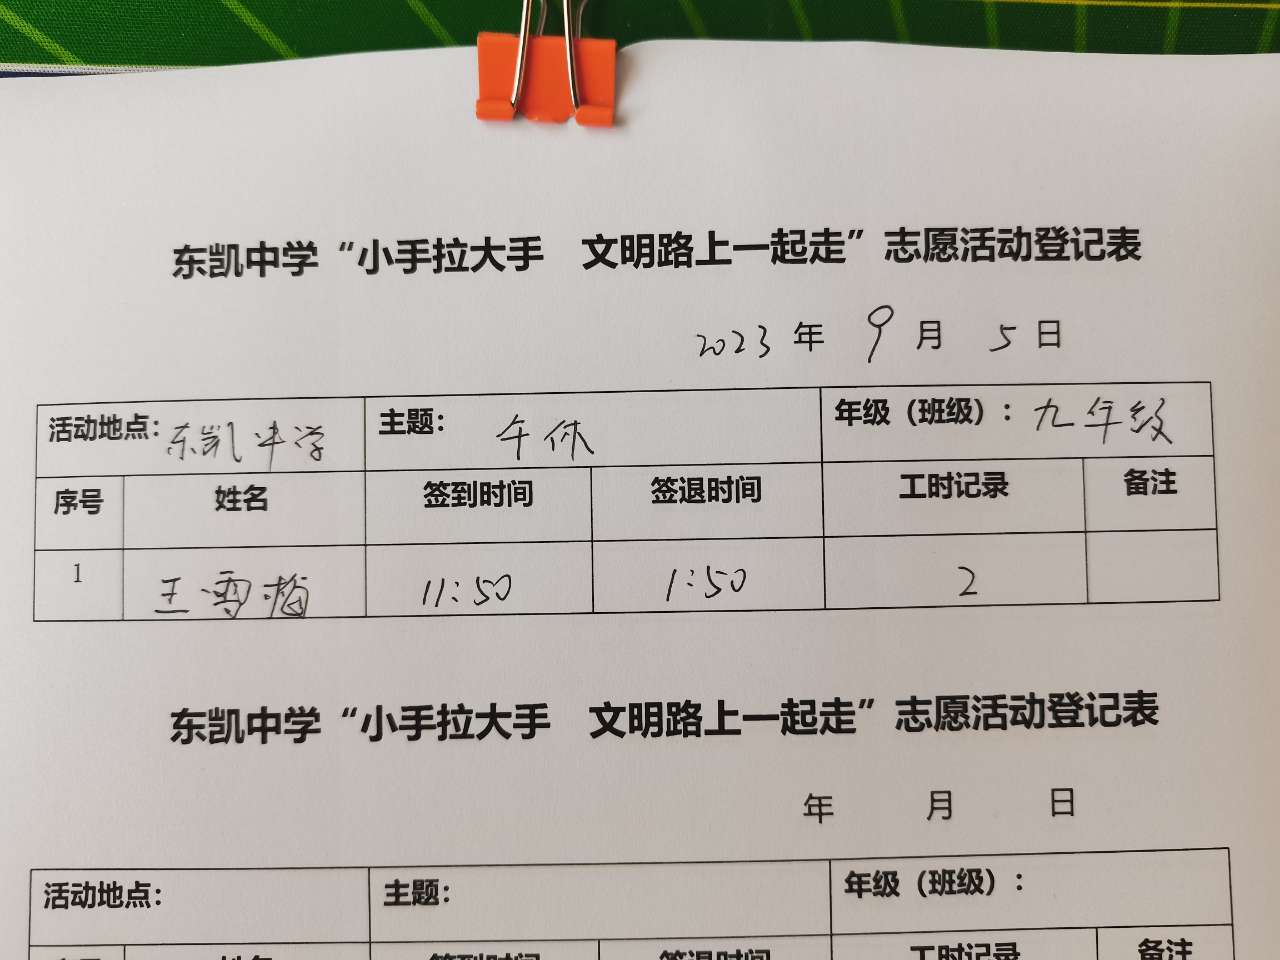 东凯中学“小手拉大手 文明路上一起走”志愿活动登记表
2023 年 9 月 5 日
活动地点：东凯中学 主题：午休 年级（班级）：九年级
序号 姓名 签到时间 签退时间 工时记录 备注
1 王雪梅 11:50 1:50 2
东凯中学“小手拉大手 文明路上一起走”志愿活动登记表
年 月 日
活动地点： 主题： 年级（班级）：
序号 姓名 签到时间 签退时间 工时记录 备注